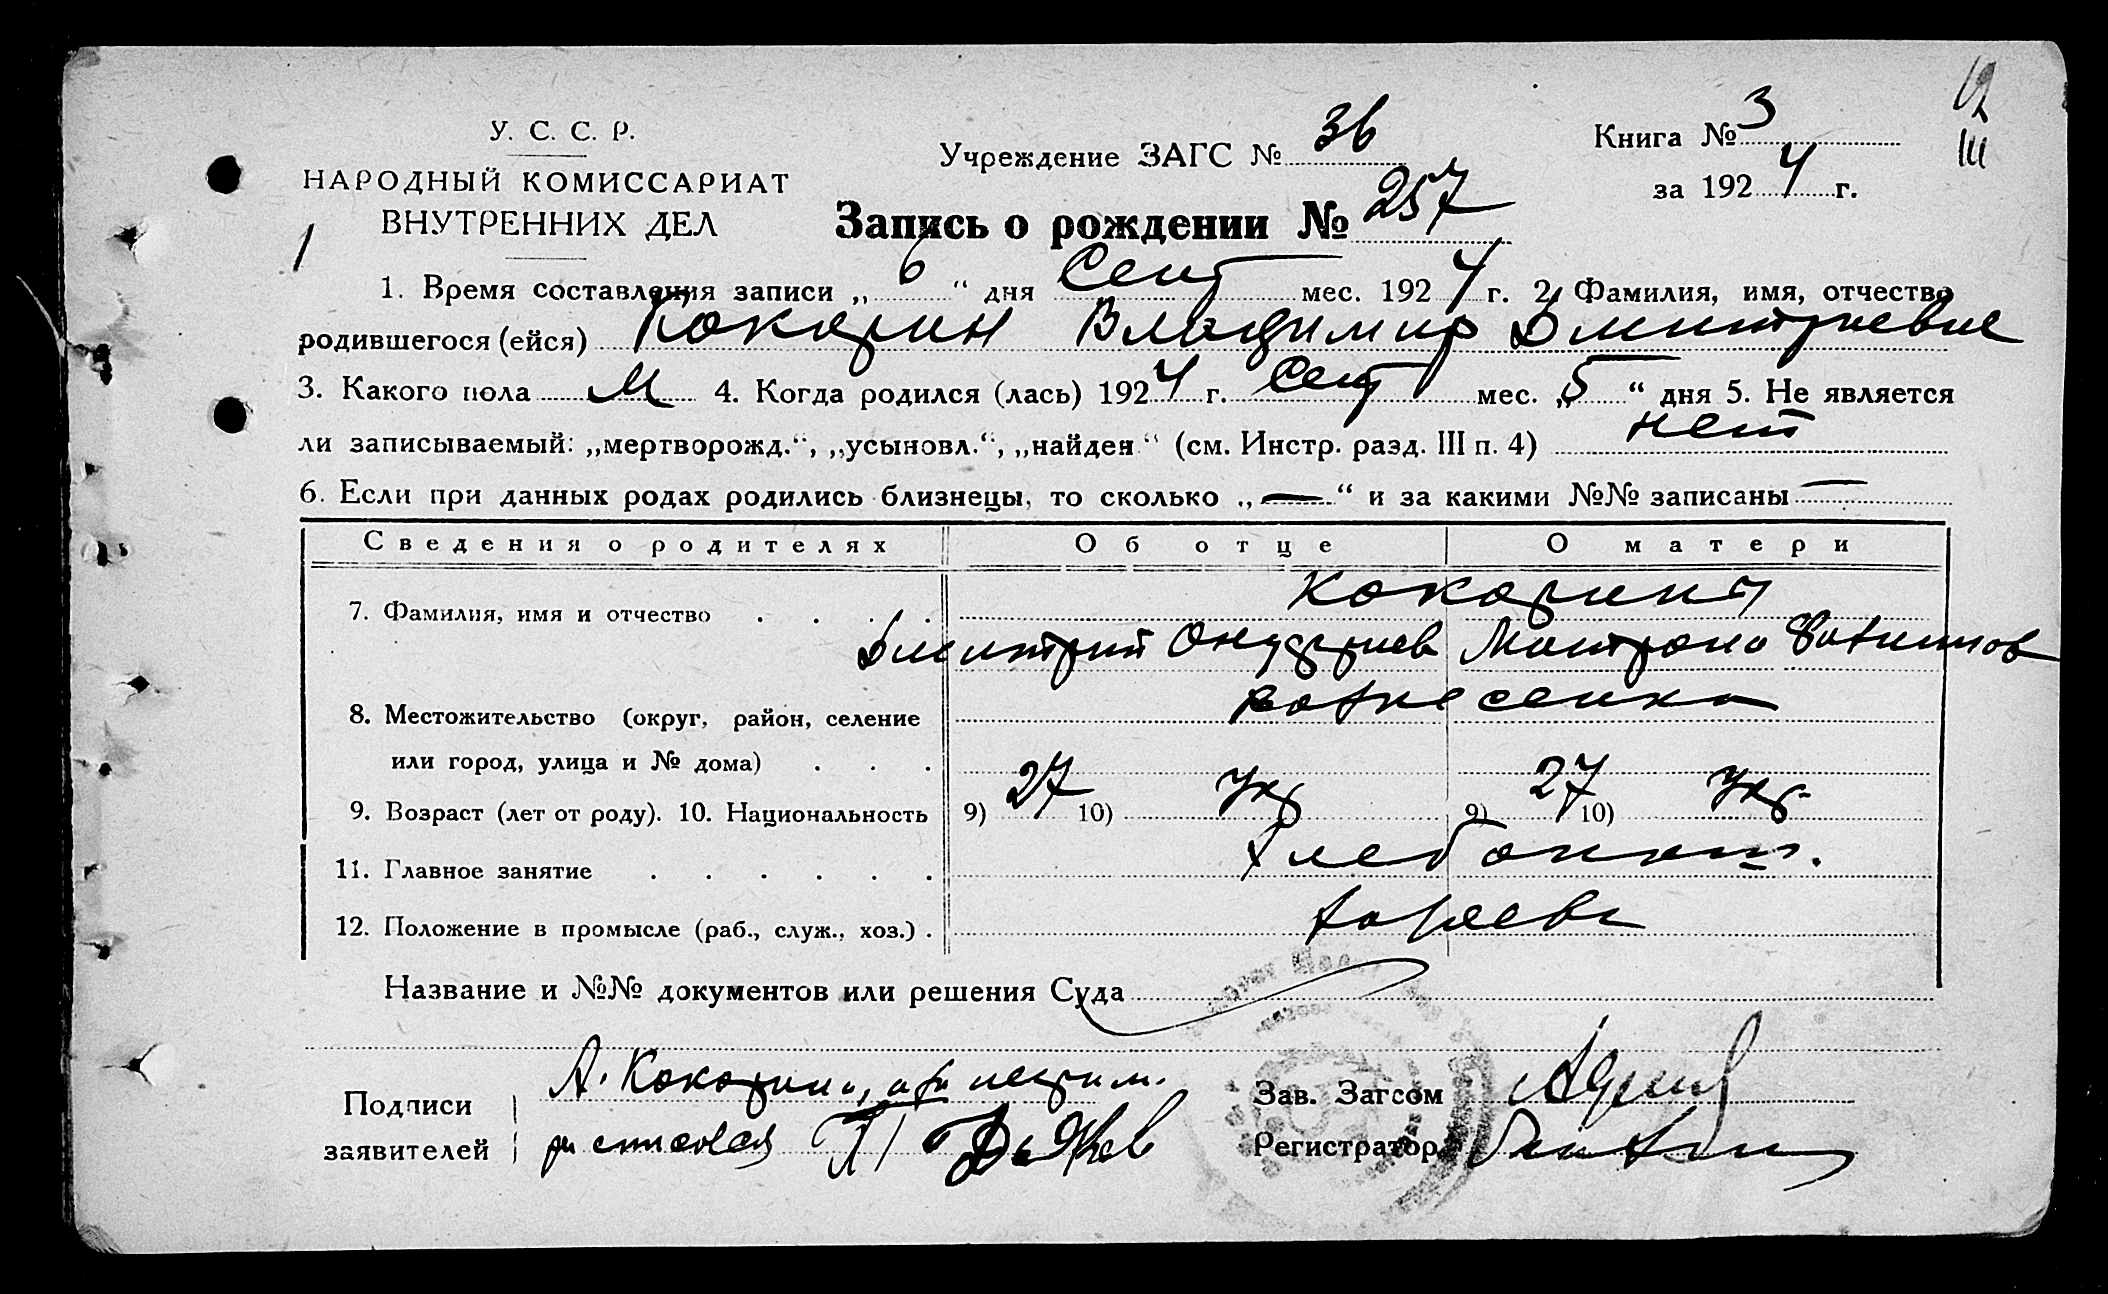 12
III
У. С. С. Р.
НАРОДНЫЙ КОМИССАРИАТ
ВНУТРЕННИХ ДЕЛ
1
Учреждение ЗАГС № 36
Книга № 3
за 1924 г.
Запись о рождении № 257
1. Время составления записи „6“ дня Сент мес. 1924 г. 2. Фамилия, имя, отчество
родившегося (ейся) Кокорин Владимир Дмитриевич
3. Какого пола М 4. Когда родился (лась) 1924 г. Сент мес. „5“ дня 5. Не является
ли записываемый: „мертворожд.“, „усыновл.“, „найден“ (см. Инстр. разд. III п. 4) нет
6. Если при данных родах родились близнецы, то сколько „—“ и за какими №№ записаны —
Сведения о родителях Об отце О матери
7. Фамилия, имя и отчество . . . . Кокорин
Дмитрий
8. Местожительство (округ, район, селение Вознесенка
или город, улица и № дома) . . .
9. Возраст (лет от роду). 10. Национальность 9) 27 10) Укр 9) 27 10) Укр.
11. Главное занятие . . . . . . Хлебопаш.
12. Положение в промысле (раб., служ., хоз.) . хозяева
Название и №№ документов или решения Суда
Подписи
заявителей
А. Кокорин
Зав. Загсом
Регистратор